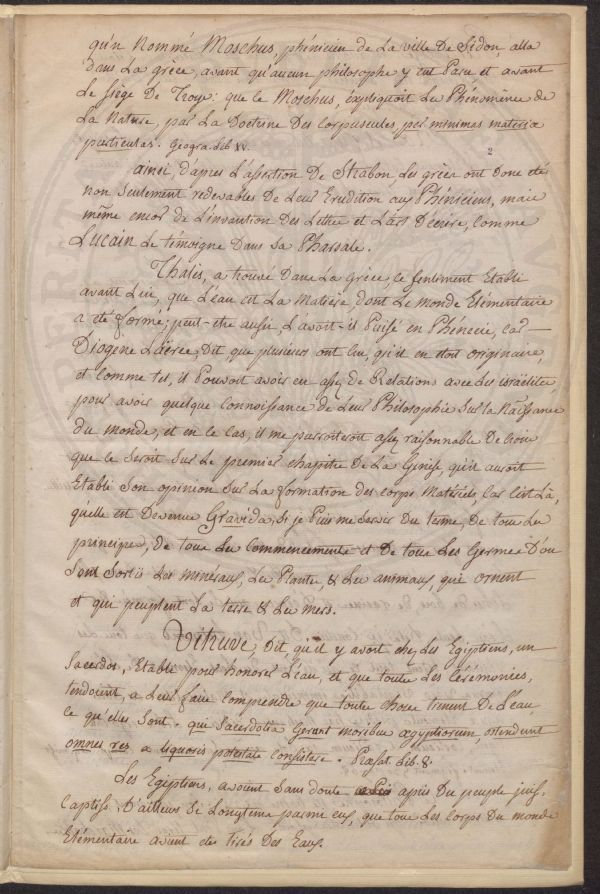 qu'n Nommé Moschus, phénicien de la ville de Sidon, alla
dans La grèce, avant qu'aucun philosophe y eut Paru et avant
Le siège De Troye: que le Moschus, expliquoit Les Phénomènes de
La Nature, par La Doctrine Des corpuscules, per minimas materia
particulas. Geogra. Lib XV.
2
ainsi, d'apres L'assertion De Strabon, Les grècs ont donc etés
non Seulement redevables De Leur Erudition aux Phéniciens, mais
même encor de L'invantion Des Lettres et L'art D'écrire, Comme
Lucain Le témoigne Dans sa Pharsale.
Thalès, a trouvé Dans La Grèce, le sentiment Etabli
avant Lui, que L'eau est La Matière dont Le monde Elémentaire
a eté formé; peut-etre aussi, L'avoit-il Puisé en Phénicie, car
Diogene Laërce, Dit que plusieurs ont Cru, qu'il en étoit originaire,
et Comme tel, il Pouvoit avoir eu assez de Relations avec Les israëlites,
pour avoir quelque connoissance de Leur Philosophie Sur la Naissance
du monde, et en ce Cas, il me paroitroit assez raisonnable De croire
que ce Seroit sur Le premier chapitre De La Genese, qu'il auroit
Etabli Son opinion Sur La formation des corps Matériels, Car C'est Là,
qu'elle est Devenue Gravida, Si je Puis me Servir Du terme, De tous Les
principes, de tous Les Commencements et De tous Les Germes D'ou
Sont Sortis Les minéraux, Les Plantes, & Les animaux, qui ornent
et qui peuplent La terre & Les mers.
Vitruve, Dit, qu'il y avoit chez Les Egiptiens, un
Sacerdos, Etabli pour honorer L'eau, et que toutes Les Cérémonies,
tendoient, a Leur faire Comprendre que toutes choses tienent De L'eau,
ce qu'elles Sont. qui Sacerdotia Gerant moribus ægyptiorum, ostendunt
omnes res a liquoris potestate Consistere. Præfat. Lib. 8.
Les Egiptiens, avoient Sans doute apris Du peuple juif,
Captifs D'ailleurs Si Longtems parmi eux, que tous Les Corps Du monde
Elémentaire avient eté tirés Des Eaux.